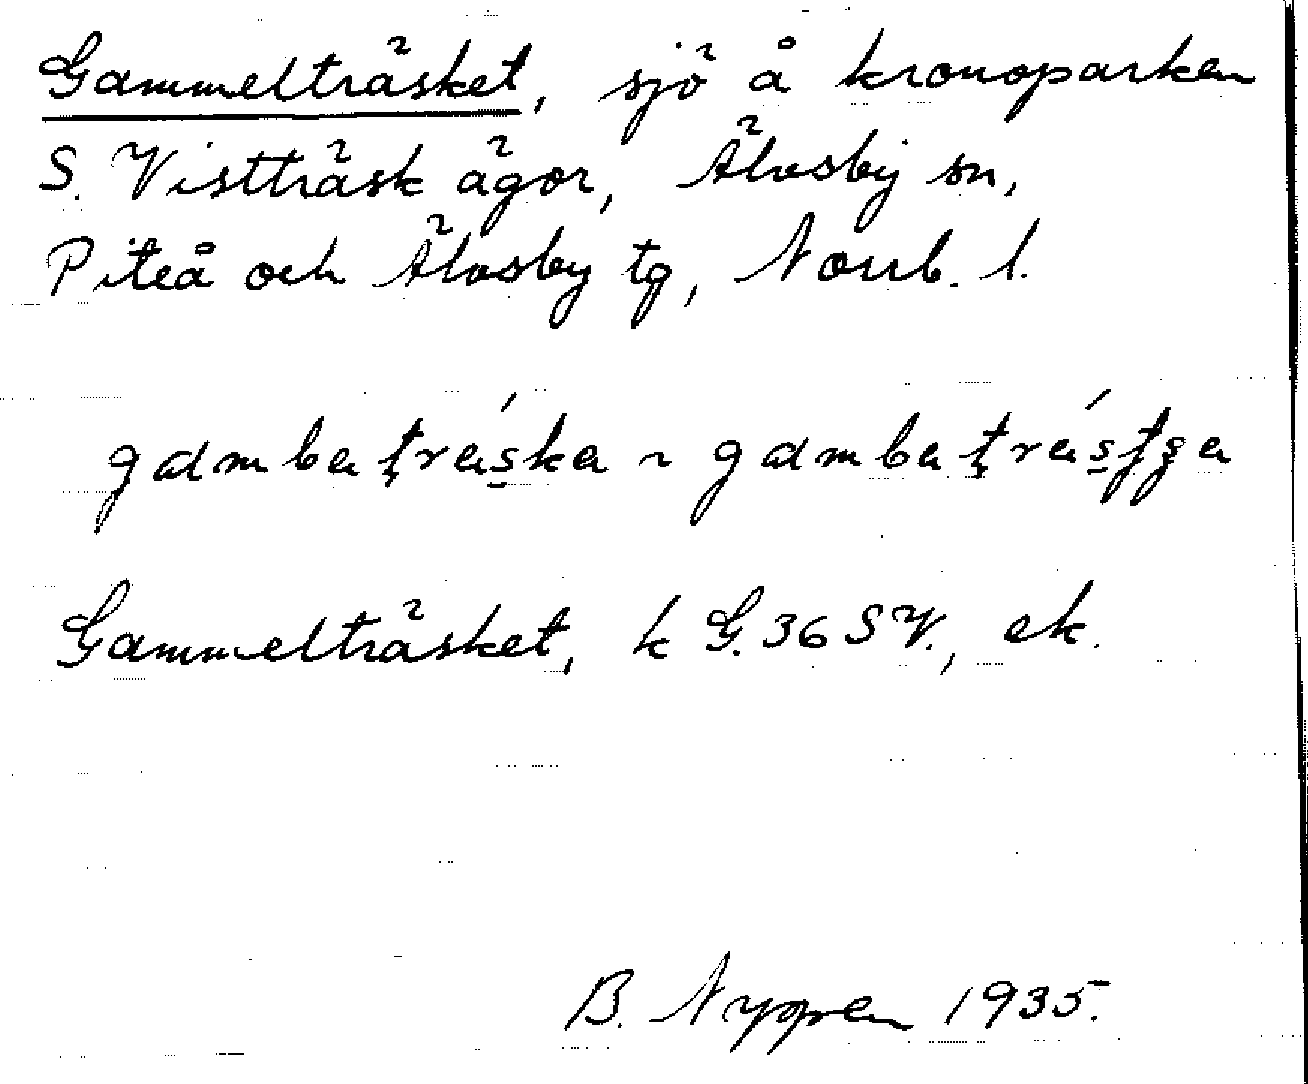 Gammelträsket, sjö å kronoparken
S. Vistträsk ägor, Älvsby sn,
Piteå och Älvsby tg, Norrb. l.
gambatráska ~ gambatrástsa
Gammelträsket, k G.36 SV., ek.
B. Nygren 1935.